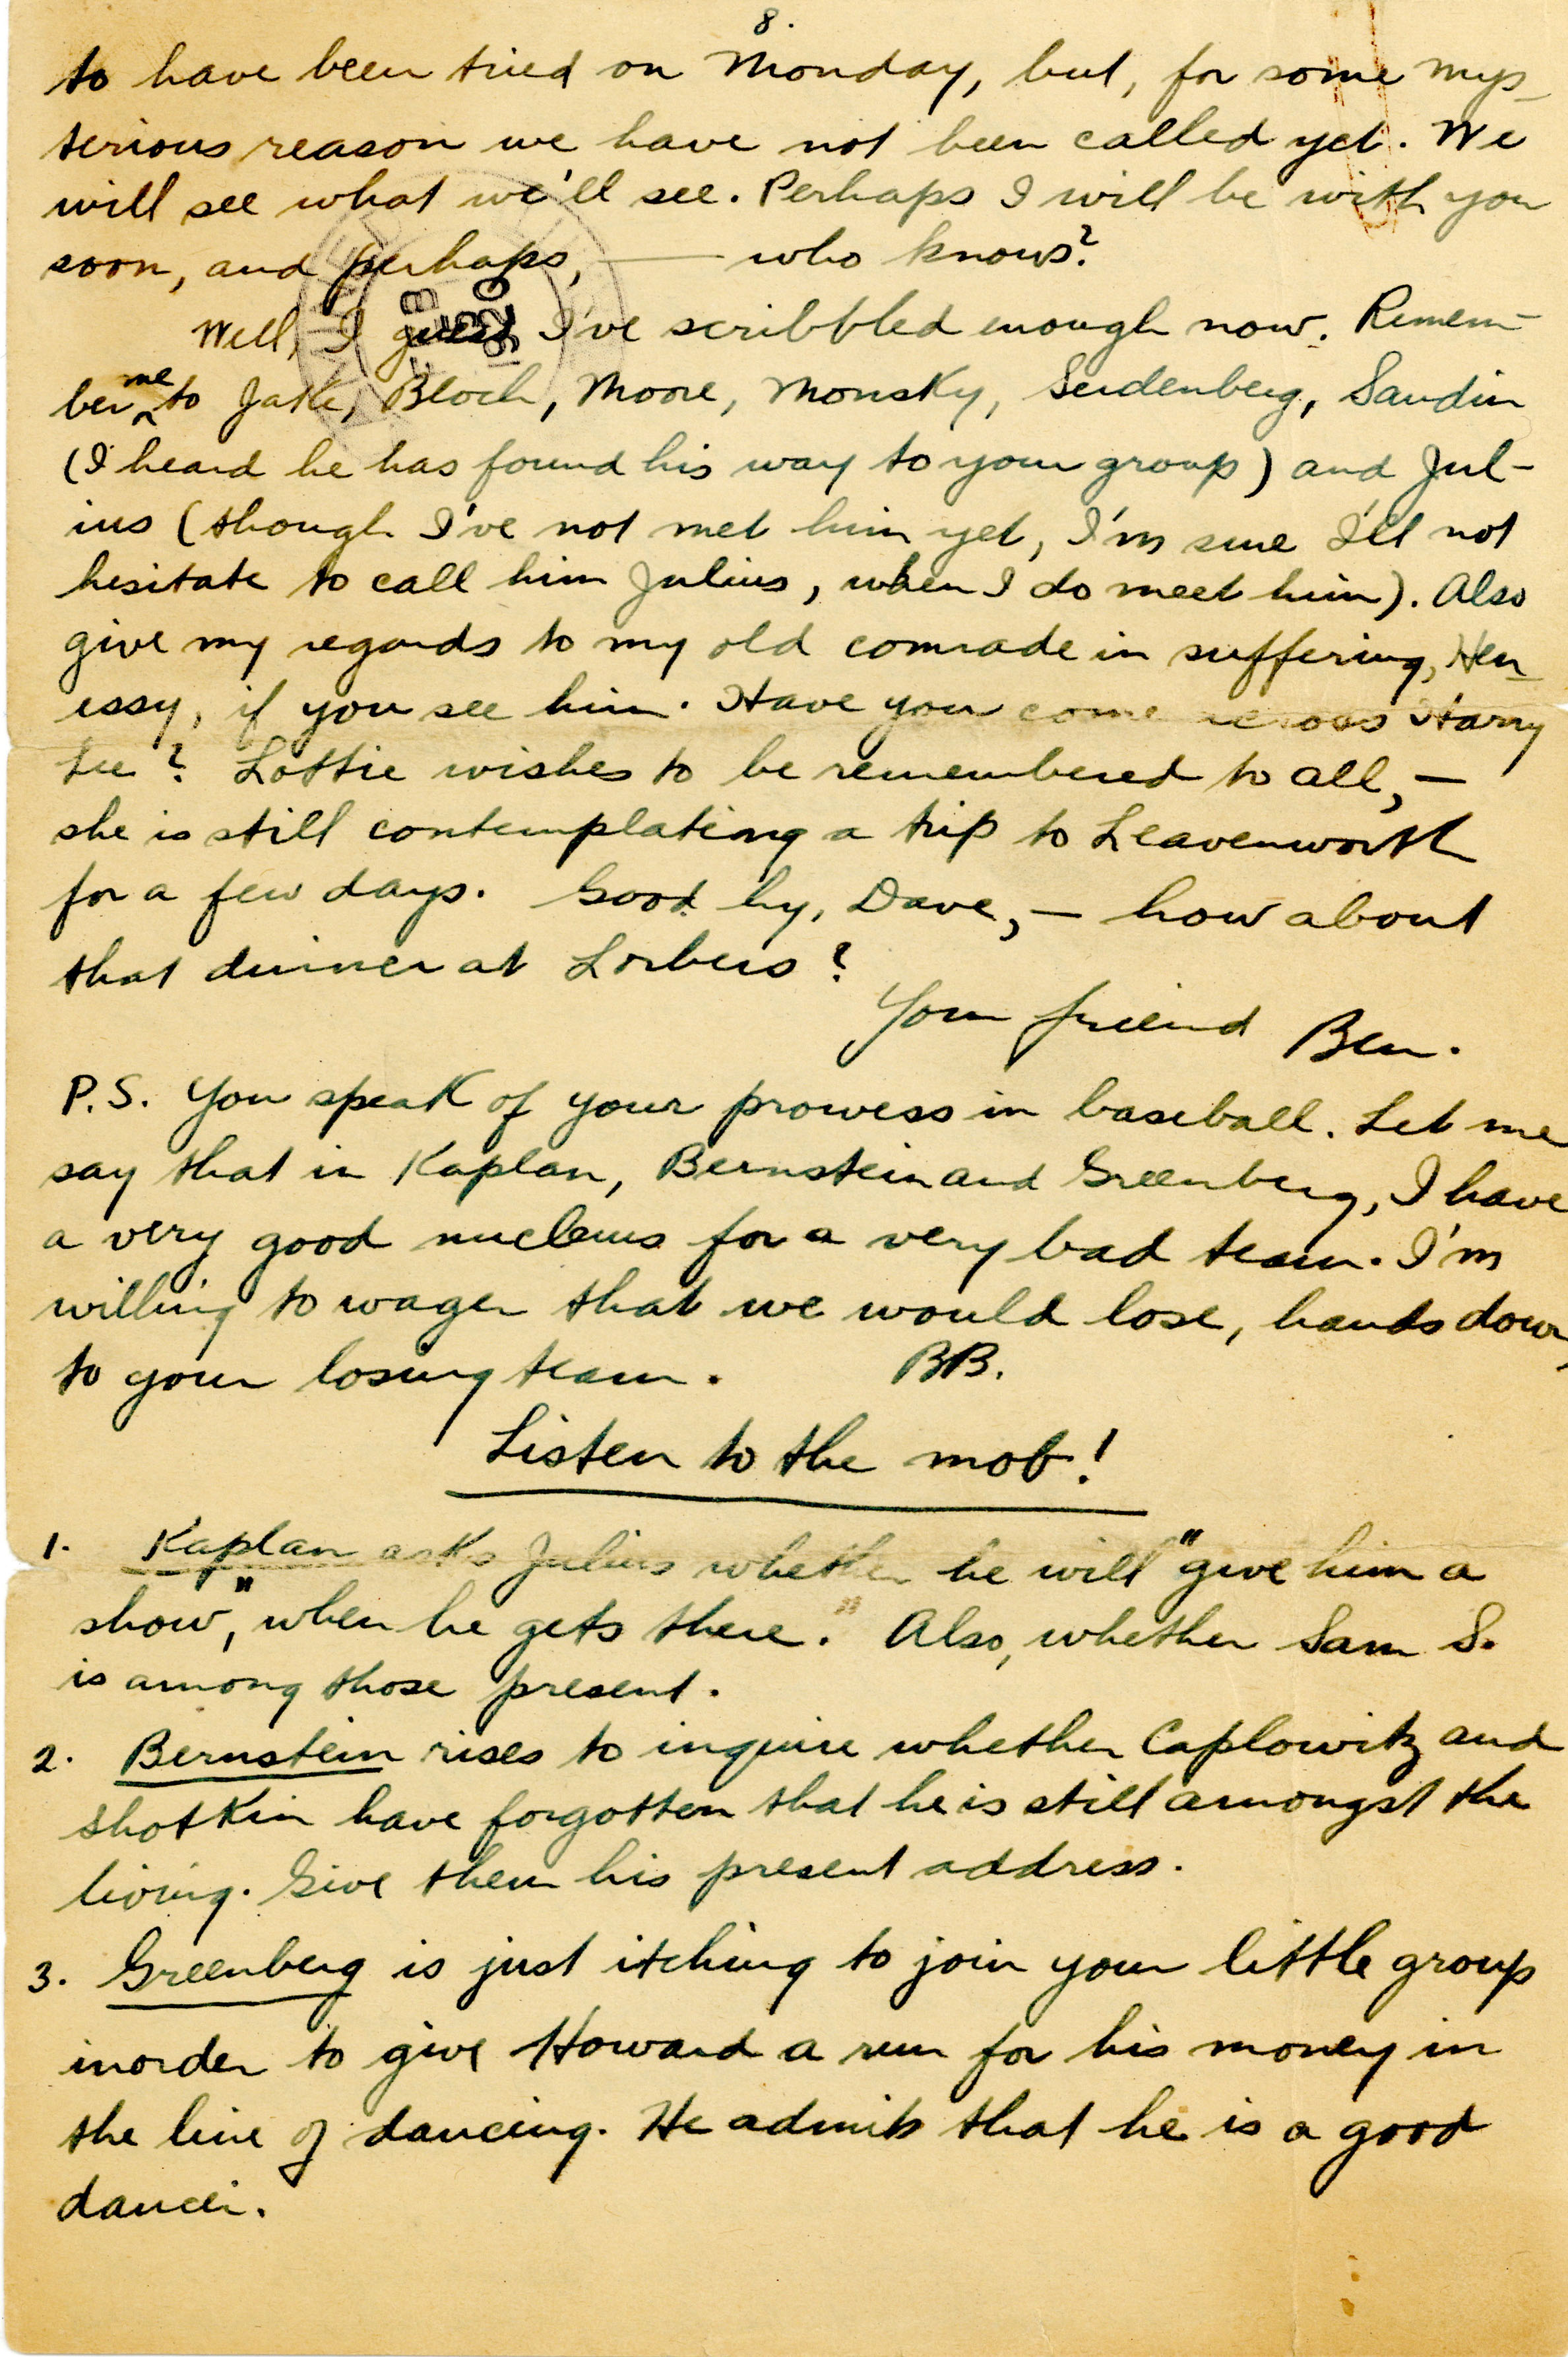 8.
to have been tried on Monday, but, for some mys-
terious reason we have not been called yet. We
will see what we'll see. Perhaps I will be with you
soon, and perhaps, — who knows?
Well, I guess I've scribbled enough now. Remem-
ber me to Jake, Bloch, Moore, Monsky, Seidenberg, Sandin
(I heard he has found his way to your group) and Jul-
ius (though I've not met him yet, I'm sure I'll not
hesitate to call him Julius, when I do meet him). Also
give my regards to my old comrade in suffering, Hen-
essy, if you see him. Have you come across Harry
Lee? Lottie wishes to be remembered to all, —
she is still contemplating a trip to Leavenworth
for a few days. Good by, Dave, — how about
that dinner at Lorbers?
Your friend Ben.
P.S. You speak of your prowess in baseball. Let me
say that in Kaplan, Bernstein and Greenberg, I have
a very good nucleus for a very bad team. I'm
willing to wager that we would lose, hands down,
to your losing team. BB.
Listen to the mob!
1. Kaplan asks Julius whether he will "give him a
show", when he gets there. Also, whether Sam S.
is among those present.
2. Bernstein rises to inquire whether Caplowitz and
Shotkin have forgotten that he is still amongst the
living. Give them his present address.
3. Greenberg is just itching to join your little group
inorder to give Howard a run for his money in
the line of dancing. He admits that he is a good
dancer.